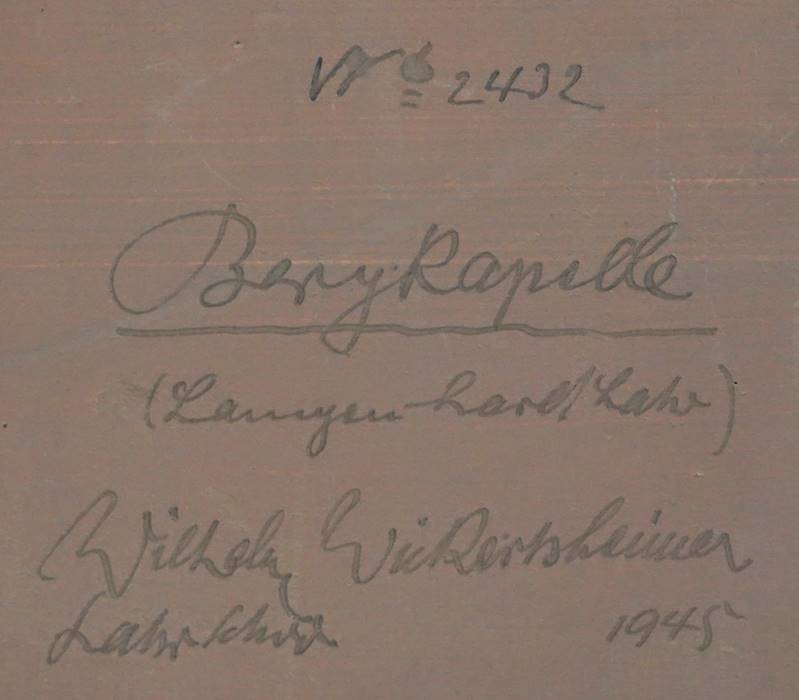 No 2432
Bergkapelle
(Langenhard/Lahr)
Wilhelm Wickertsheimer
Lahr 1945